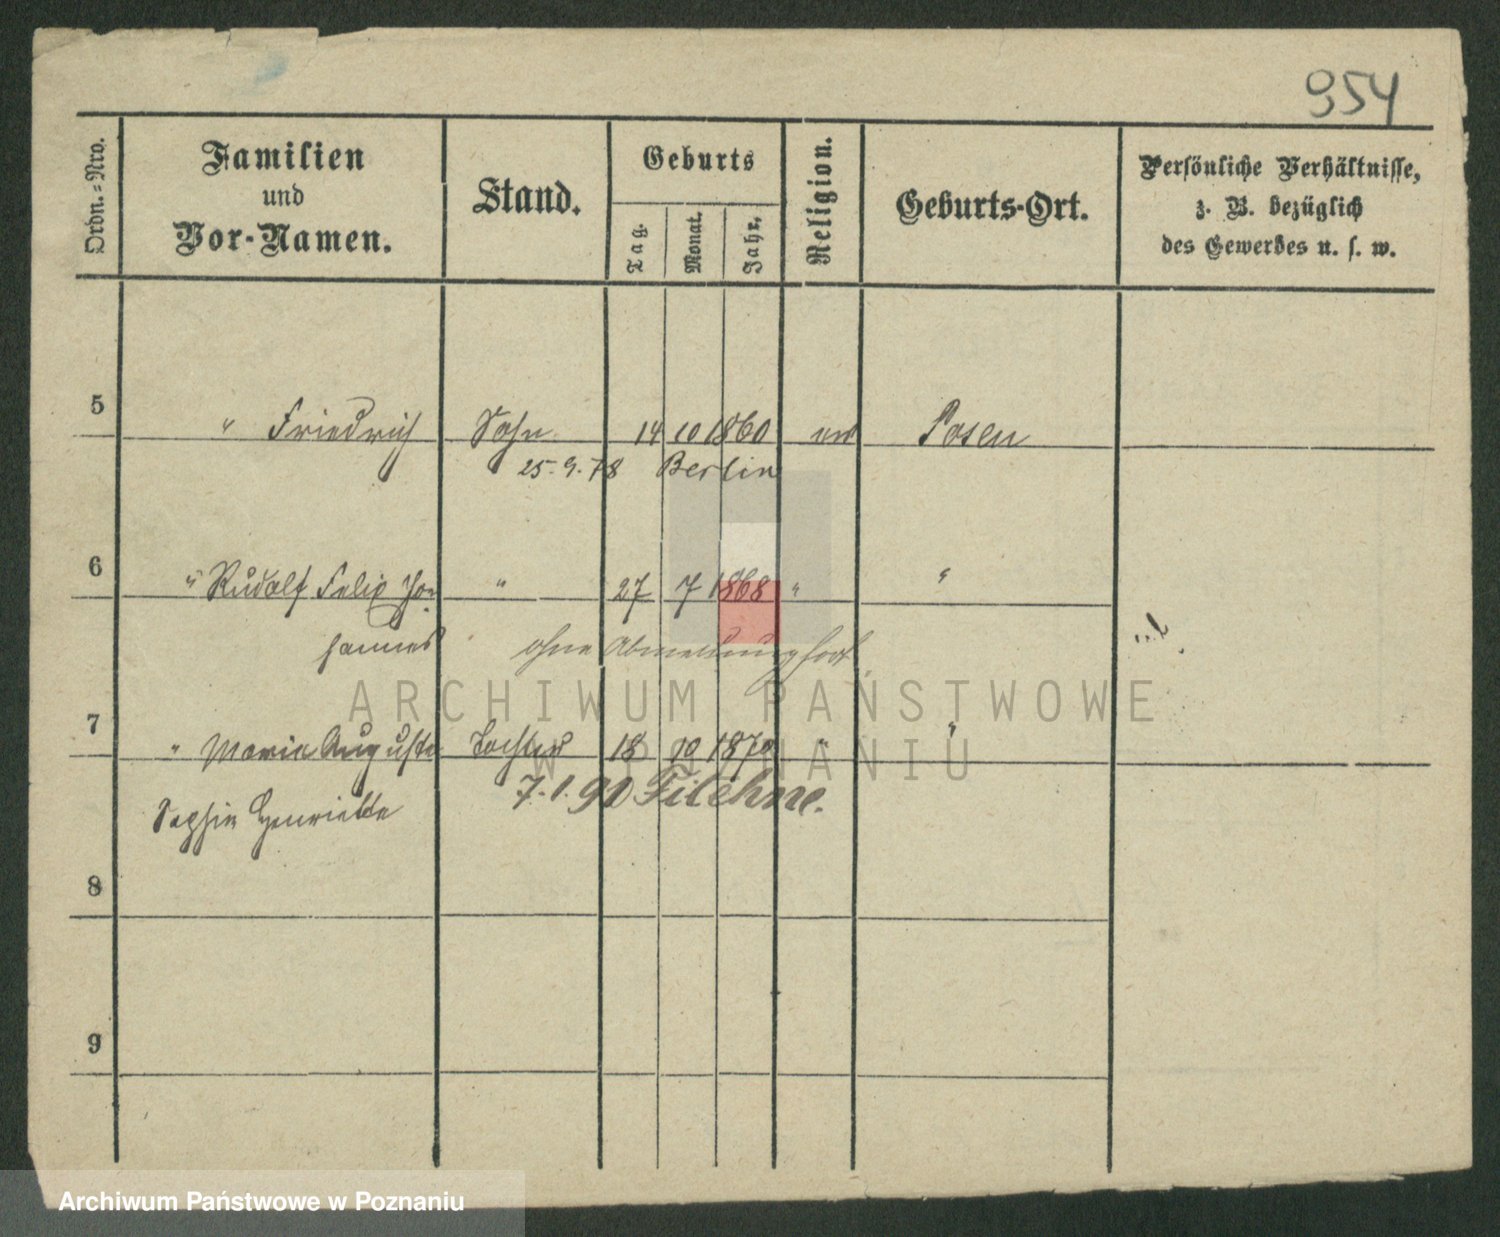 954
Ordn.-Nro.
Familien
und
Vor-Namen.
Stand.
Geburts
Tag.
Monat.
Jahr.
Religion.
Geburts-Ort.
Persönliche Verhältnisse,
z. B. bezüglich
des Gewerbes u. s. w.
5 " Friedrich Sohn 14 10 1860 Posen
25.9.78 Berlin
6 " Rudolf Felix Jo- " 27 7 1868 " "
hannes ohne Abmeldung fort
7 " Maria Auguste Tochter 18 10 1870 " "
7.1.90 Filehne.
Sophie Henriette
8
9
ARCHIWUM PAŃSTWOWE
W POZNANIU
Archiwum Państwowe w Poznaniu